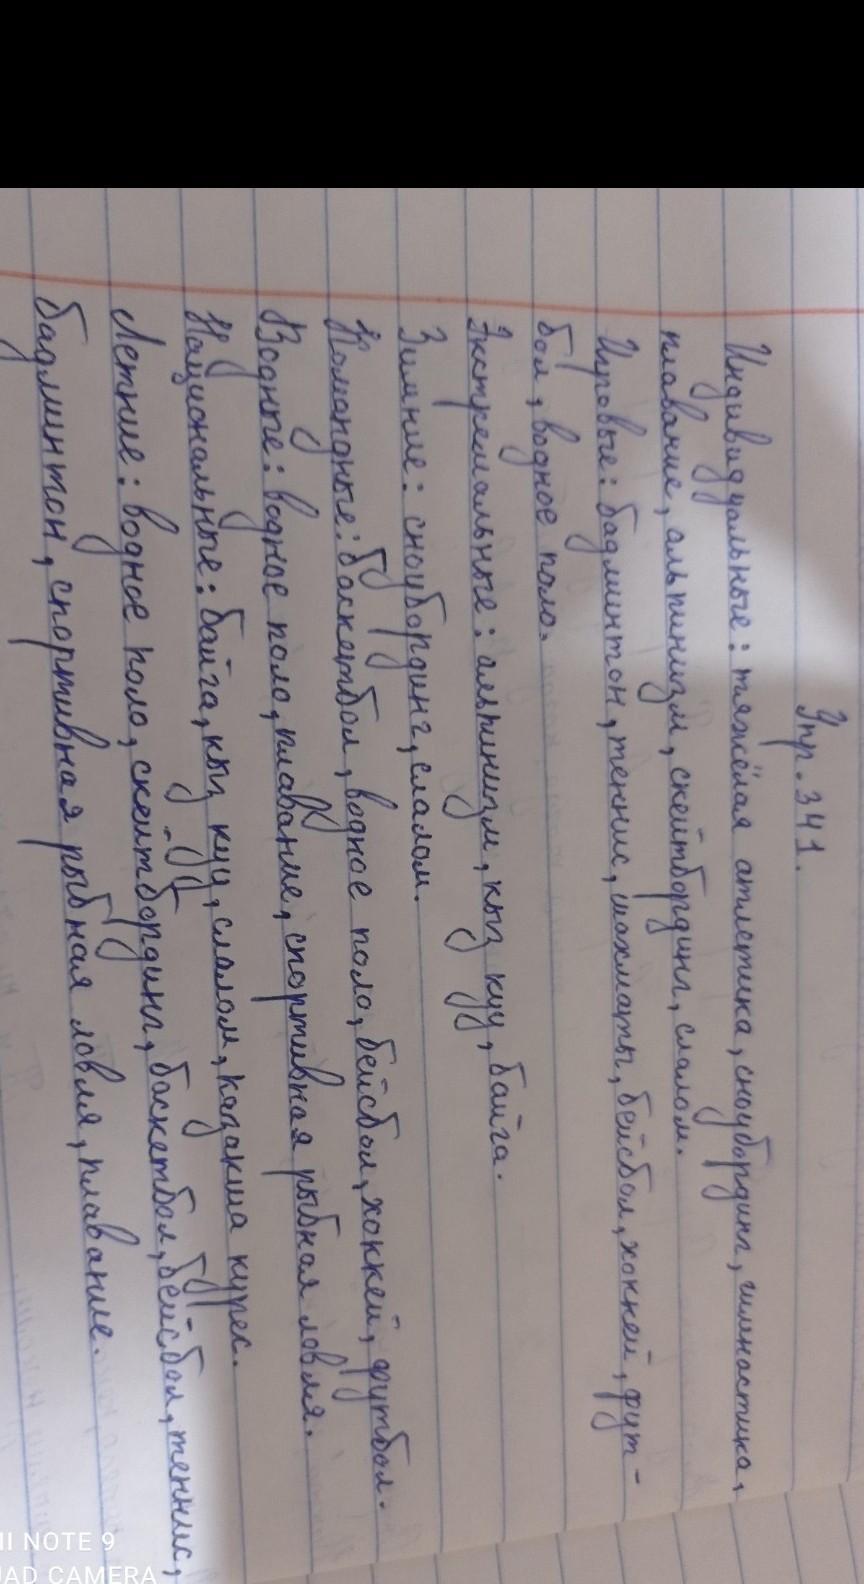 Упр. 341.
Индивидуальные: тяжёлая атлетика, сноубординг, гимнастика,
плавание, альпинизм, скейтбординг, слалом.
Игровые: бадминтон, теннис, шахматы, бейсбол, хоккей, фут-
бол, водное поло.
Экстремальные: альпинизм, кыз куу, байга.
Зимние: сноубординг, слалом.
Командные: баскетбол, водное поло, бейсбол, хоккей, футбол.
Водные: водное поло, плавание, спортивная рыбная ловля.
Национальные: байга, кыз куу, слалом, казакша курес.
Летние: водное поло, скейтбординг, баскетбол, бейсбол, теннис,
бадминтон, спортивная рыбная ловля, плавание.
MI NOTE 9
QUAD CAMERA